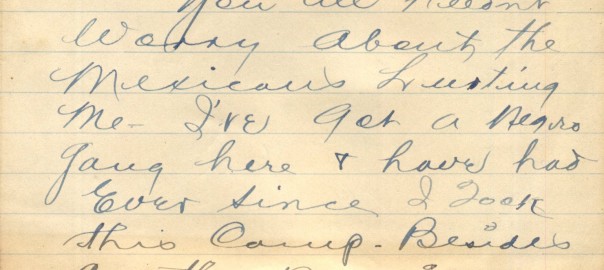 You all Neednt
Worry About the
Mexicans hurting
Me- I've Got a Negro
Gang here & have had
Ever since I Took
this Camp- Besides